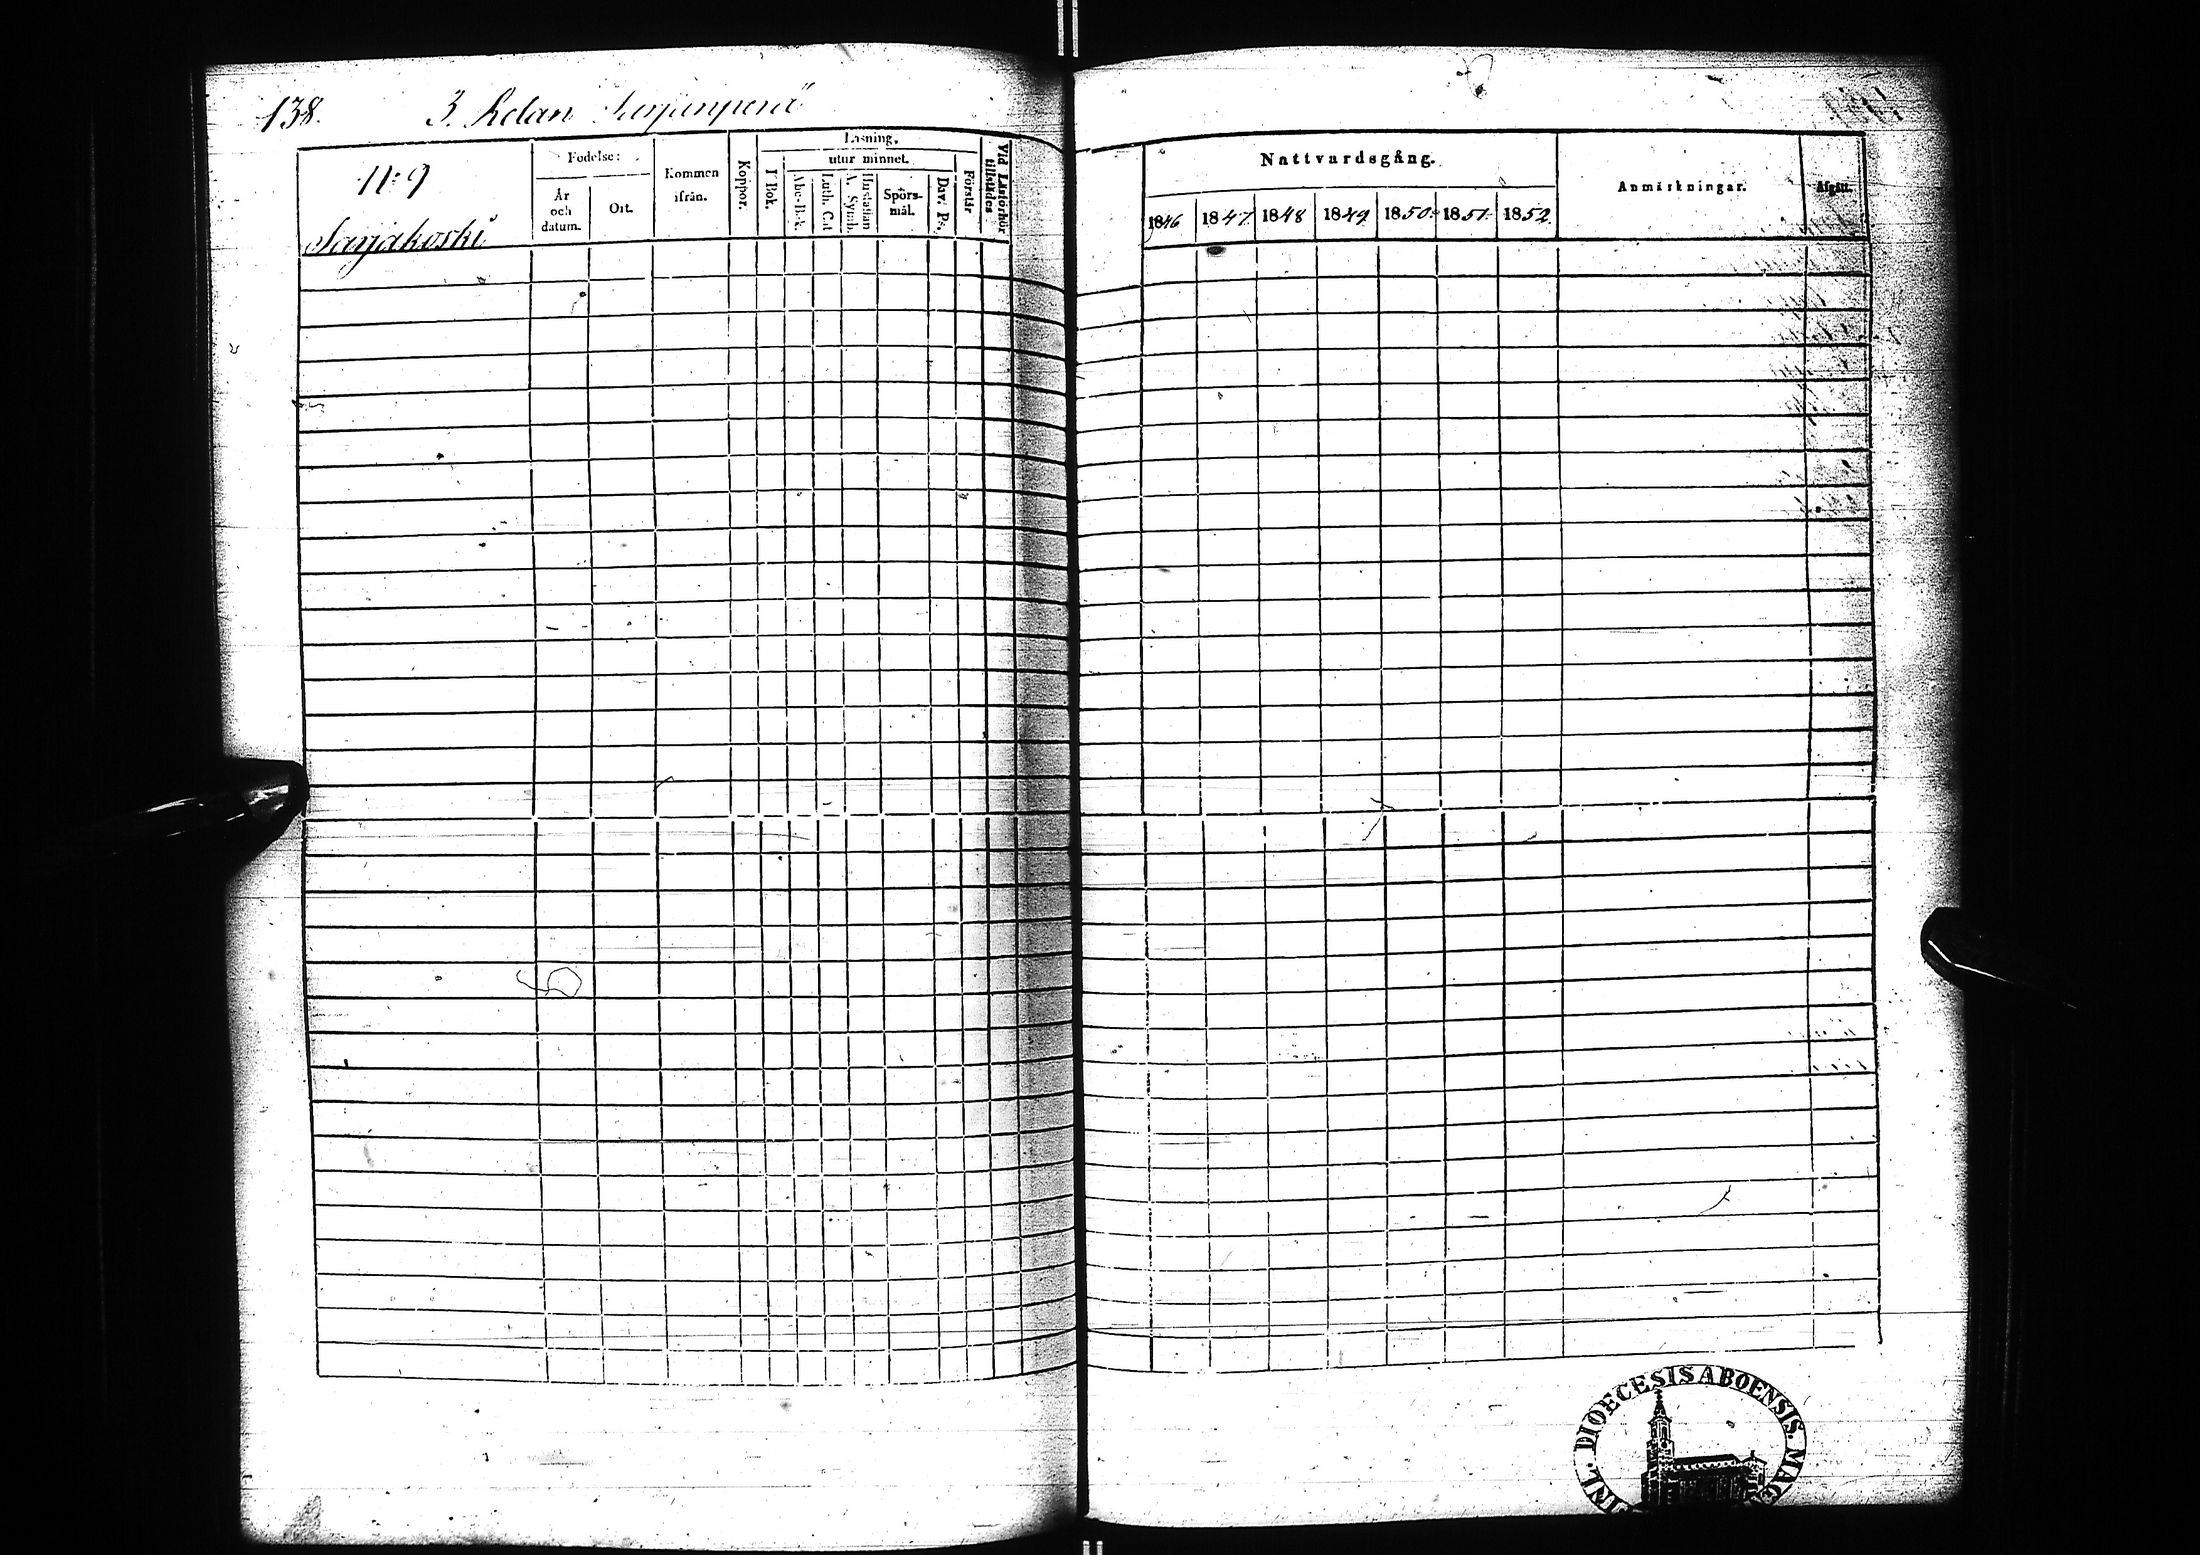 138. 3. Rotan
N:o 9
Sarjakoski
Födelse:
År och datum.
Ort.
Kommen ifrån.
Koppor.
Läsning,
utur minnet.
I Bok.
Abc-Bok.
Luth. Cat
Hustaflan A. Symb.
Spörs-mål.
Dav. Ps.
Förstår
Vid Läsförhör tillstädes
Nattvardsgång.
1846 1847 1848 1849 1850 1851 1852
Anmärkningar.
Afgått.
DIOECESIS ABOENSIS. MAG